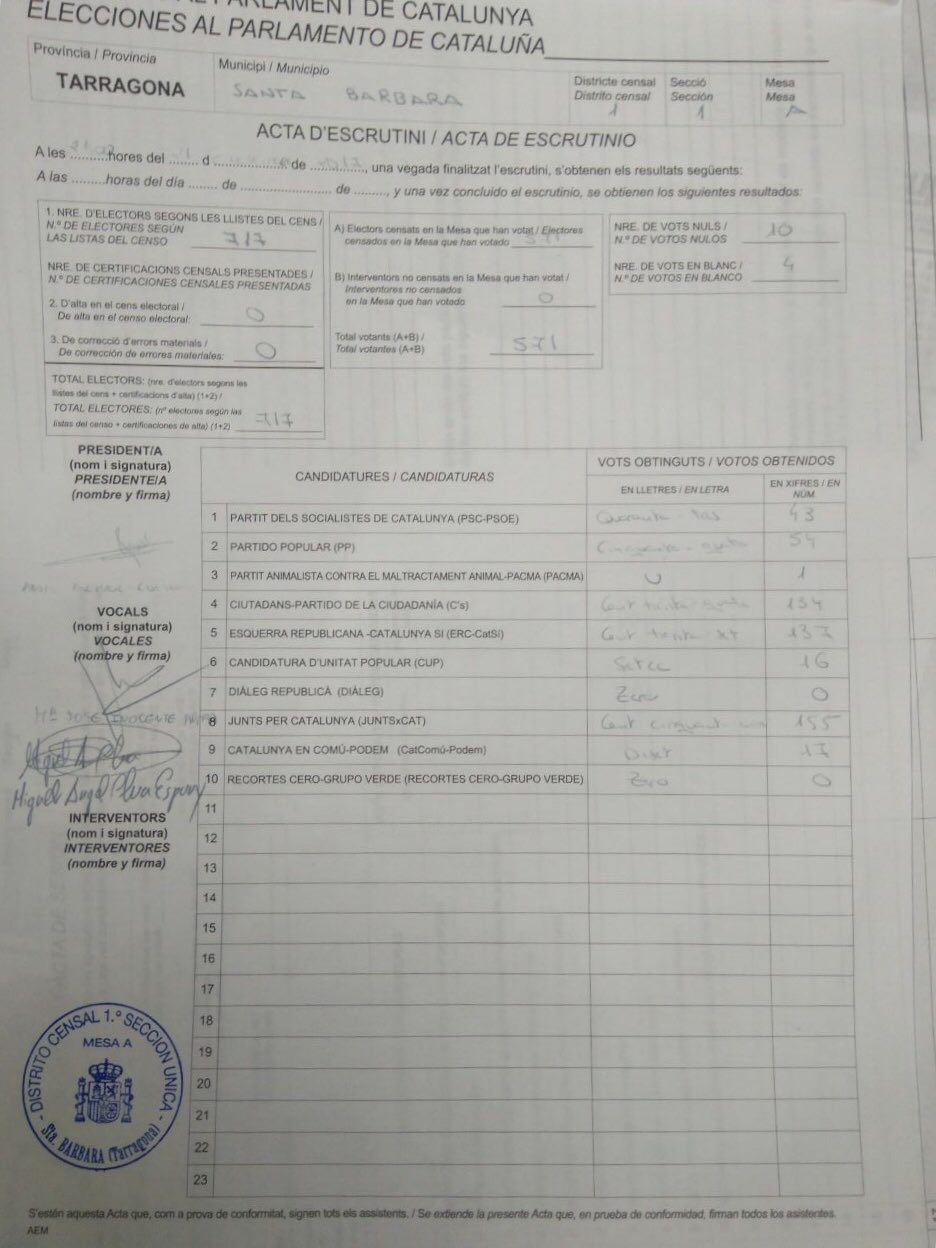 PARLAMENT DE CATALUNYA
ELECCIONES AL PARLAMENTO DE CATALUÑA
Província / Provincia
TARRAGONA
Municipi / Municipio
SANTA BARBARA
Districte censal
Distrito censal
1
Secció
Sección
1
Mesa
Mesa
A
ACTA D'ESCRUTINI / ACTA DE ESCRUTINIO
A les ..........hores del ........ d ...................... de .............., una vegada finalitzat l'escrutini, s'obtenen els resultats següents:
A las .........horas del día ........ de ......................... de ........., y una vez concluido el escrutinio, se obtienen los siguientes resultados:
1. NRE. D'ELECTORS SEGONS LES LLISTES DEL CENS /
N.º DE ELECTORES SEGÚN
LAS LISTAS DEL CENSO 717
NRE. DE CERTIFICACIONS CENSALS PRESENTADES /
N.º DE CERTIFICACIONES CENSALES PRESENTADAS
2. D'alta en el cens electoral /
De alta en el censo electoral: 0
3. De correcció d'errors materials /
De corrección de errores materiales: 0
TOTAL ELECTORS: (nre. d'electors segons les
llistes del cens + certificacions d'alta) (1+2) /
TOTAL ELECTORES: (nº electores según las
listas del censo + certificaciones de alta) (1+2) 717
A) Electors censats en la Mesa que han votat / Electores
censados en la Mesa que han votado 571
B) Interventors no censats en la Mesa que han votat /
Interventores no censados
en la Mesa que han votado 0
Total votants (A+B) /
Total votantes (A+B) 571
NRE. DE VOTS NULS /
N.º DE VOTOS NULOS 10
NRE. DE VOTS EN BLANC /
N.º DE VOTOS EN BLANCO 4
PRESIDENT/A
(nom i signatura)
PRESIDENTE/A
(nombre y firma)
VOCALS
(nom i signatura)
VOCALES
(nombre y firma)
Mª JOSÉ INOCENTE
Miguel Angel
INTERVENTORS
(nom i signatura)
INTERVENTORES
(nombre y firma)
CANDIDATURES / CANDIDATURAS
VOTS OBTINGUTS / VOTOS OBTENIDOS
EN LLETRES / EN LETRA
EN XIFRES / EN NÚM.
1 PARTIT DELS SOCIALISTES DE CATALUNYA (PSC-PSOE) Quaranta-tres 43
2 PARTIDO POPULAR (PP) 54
3 PARTIT ANIMALISTA CONTRA EL MALTRACTAMENT ANIMAL-PACMA (PACMA) U 1
4 CIUTADANS-PARTIDO DE LA CIUDADANÍA (C's) 134
5 ESQUERRA REPUBLICANA -CATALUNYA SÍ (ERC-CatSí) 137
6 CANDIDATURA D'UNITAT POPULAR (CUP) Setze 16
7 DIÀLEG REPUBLICÀ (DIÀLEG) Zero 0
8 JUNTS PER CATALUNYA (JUNTSxCAT) 155
9 CATALUNYA EN COMÚ-PODEM (CatComú-Podem) 17
10 RECORTES CERO-GRUPO VERDE (RECORTES CERO-GRUPO VERDE) Zero 0
11
12
13
14
15
16
17
18
19
20
21
22
23
DISTRITO CENSAL 1.º SECCION UNICA
MESA A
Sta. BARBARA (Tarragona)
S'estén aquesta Acta que, com a prova de conformitat, signen tots els assistents. / Se extiende la presente Acta que, en prueba de conformidad, firman todos los asistentes.
AEM